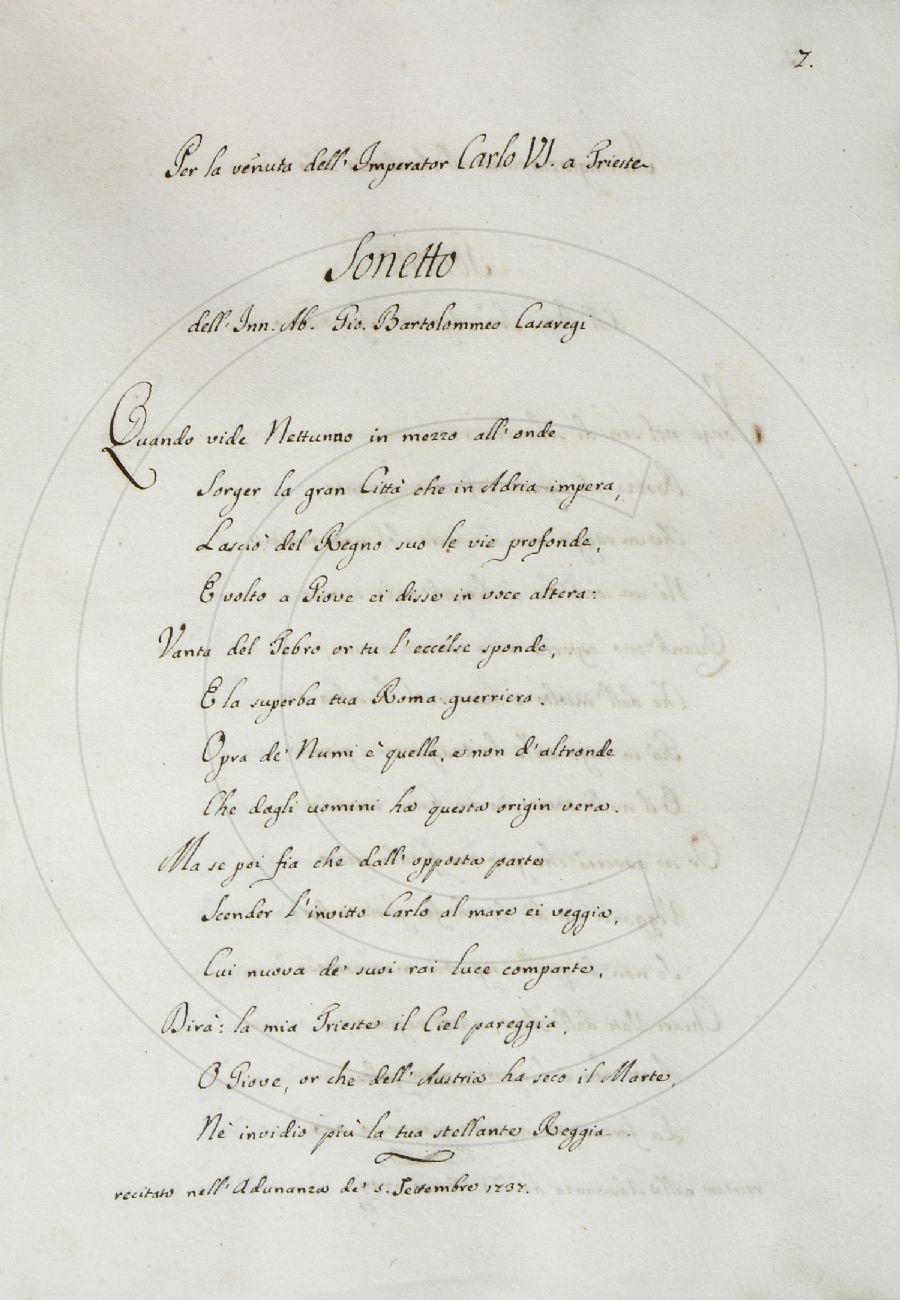 7.
Per la venuta dell' Imperator Carlo VI. a Trieste
Sonetto
dell' Inn. Ab. Gio. Bartolommeo Casaregi
Quando vide Nettunno in mezzo all' onde
Sorger la gran Città che in Adria impera,
Lasciò del Regno suo le vie profonde,
E volto a Giove ei disse in voce altera:
Vanta del Tebro or tu l' eccelse sponde,
E la superba tua Roma guerriera.
Opra de' Numi è quella, e non d' altronde
Che dagli uomini ha questa origin vera.
Ma se poi fia che dall' opposta parte
Scender l' invitto Carlo al mare ei veggia,
Cui nuova de' suoi rai luce comparte,
Dirà: la mia Trieste il Ciel pareggia,
O Giove, or che dell' Austria ha seco il Marte,
Nè invidio più la tua stellante Reggia.
recitato nell' Adunanza de' 5. Settembre 1737.